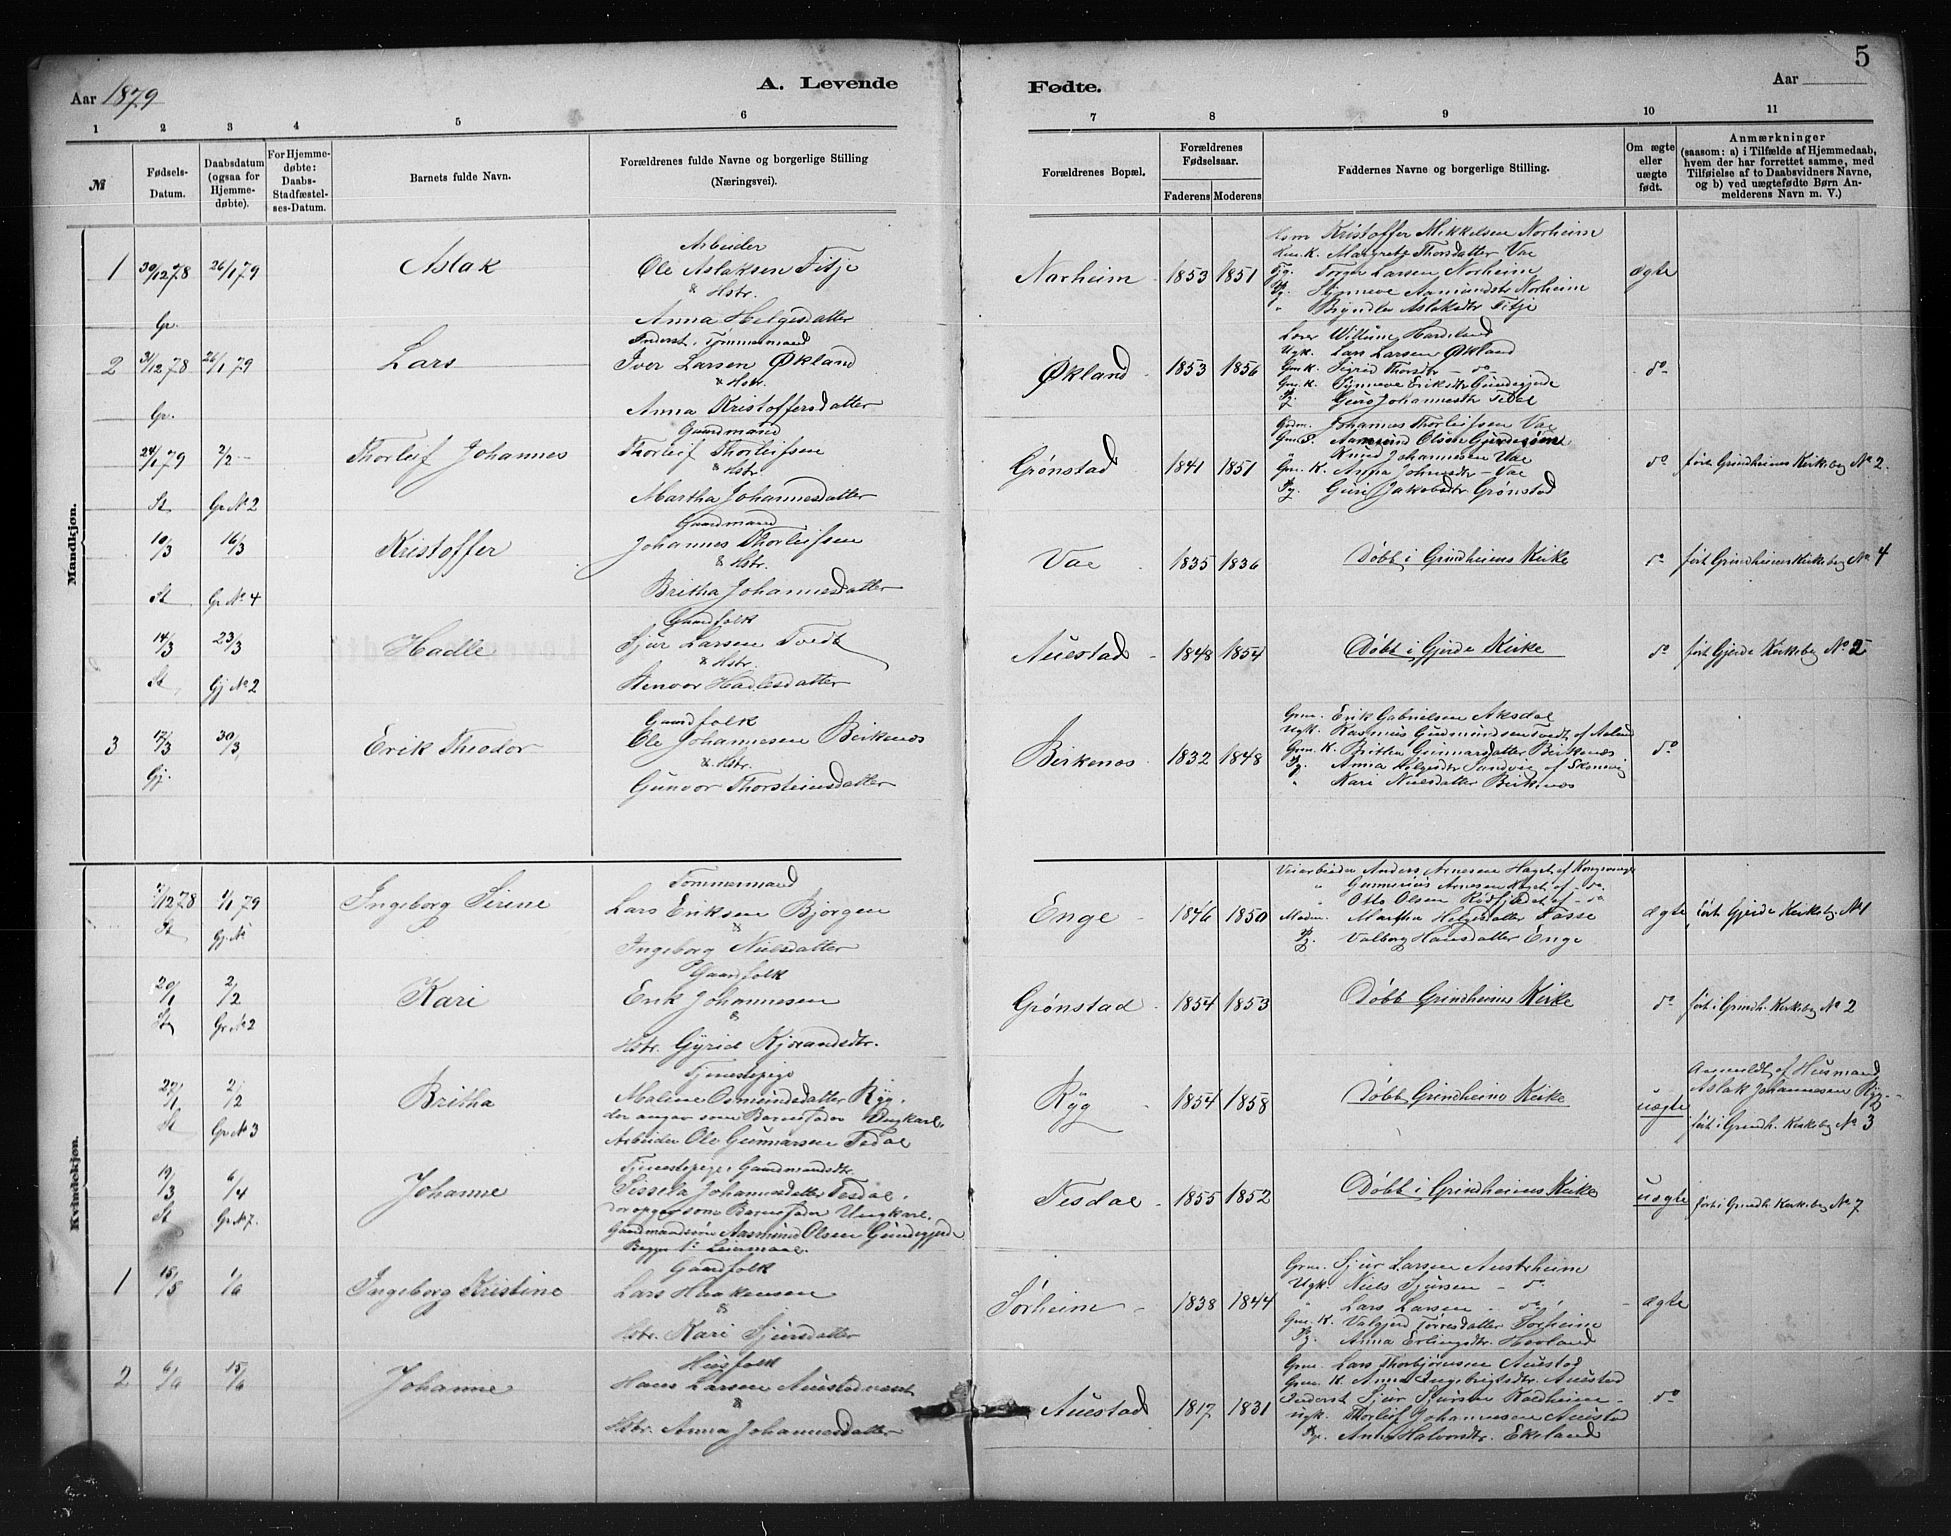 5
Aar 1879
A. Levende
Fødte.
Aar
1 2 3 4 5 6
7 8 9 10 11
№
Fødsels-Datum.
Daabsdatum (ogsaa for Hjemme-døbte).
For Hjemme-døbte: Daabs-Stadfæstelses-Datum.
Barnets fulde Navn.
Forældrenes fulde Navne og borgerlige Stilling (Næringsvei).
Forældrenes Bopæl,
Forældrenes Fødselsaar.
Faderens Moderens
Faddernes Navne og borgerlige Stilling.
Om ægte eller uægte født.
Anmærkninger
(saasom: a) i Tilfælde af Hjemmedaab, hvem der har forrettet samme, med Tilføielse af to Daabsvidners Navne, og b) ved uægtefødte Børn Anmelderens Navn m. V.)
Mandkjøn.
1 30/12 78 26/1 79 Aslak
Gr.
Arbeider
Ole Aslaksen Fitje
& Hstr.
Anna Helgesdatter
Norheim 1853 1851
Hsm Kristoffer Mikkelsen Norheim
Hm.K. Margrete Thorsdatter Vae
Torger Larsen Norheim
Pg. Synneve Aamundsdtr Norheim
" Aslaksdtr Fitje
ægte
2 31/12 78 26/1 79 Lars
Gr.
Inderst, Tømmermand
Iver Larsen Økland
& Hstr.
Anna Kristoffersdatter
Økland 1853 1856
Lærer Willum Hardeland
Ugk. Lars Larsen Økland
Gm.K. Sigrid Thorsdtr - do -
Gm.K. Synneve Eriksdtr Gundegjerde
Pg. Guro Johannesdtr Tesdal
do
24/1 79 2/2 - Thorleif Johannes
St Gr № 2
Gaardmand
Thorleif Thorleifsen
& Hstr
Martha Johannesdatter
Grønstad 1841 1851
Johannes Thorleifsen Vae
Aamund Olsen
" Knud Johannesen Vae
Gm. K. Anna Johnsdtr - Vae
Pg. Guri Jakobsdtr Grønstad
do ført Grindheims Kirkebog № 2.
10/3 16/3 Kristoffer
St Gr № 4
Gaardmand
Johannes Thorleifsen
& Hstr.
Britha Johannesdatter
Vae 1835 1836
Døbt i Grindheims Kirke
do ført Grindheims Kirkebog № 4
14/3 23/3 Hadle
St Gj № 2
Gaardfolk
Sjur Larsen Tvedt
& Hstr.
Stenvor Hadlesdatter
Auestad 1848 1854
Døbt i Gjerde Kirke
do ført Gjerde Kirkebog № 2
3 17/3 30/3 Erik Theodor
Gj.
Gaardfolk
Ole Johannesen Birkenæs
& Hstr.
Gunvor Thorsteinsdatter
Birkenæs 1832 1848
Grm. Erik Gabrielsen Aksdal
Ugk. Rasmus Gudmundsen Tvedt af Aaland
Grm. K. Britha Gunnarsdatter Birkenæs
Pg. Anna Helgesdtr Sandvig af Skonevig
" Kari Nielsdatter Birkenæs
do
Kvindekjøn.
/12 78 1/1 79 Ingeborg Serine
St Gj №
Tømmermand
Lars Eriksen Bjørgen
&
Ingeborg Nielsdatter
Enge 1846 1850
Veiarbeider Anders Arnesen Haget af Kongsvinger
" Gunnerius Arnesen Haget af - do.
" Otto Olsen Rødfjedet af - do
Madm. Martha Helgesdatter Fosse
Pg. Valborg Hansdatter Enge
ægte ført Gjerde Kirkebog № 1
20/1 2/2 Kari
St Gr № 2
Gaardfolk
Erik Johannesen
&
Hstr. Gyrid Kjørandsdtr.
Grønstad 1854 1853
Døbt Grindheims Kirke
do ført i Grindh. Kirkebog № 2
27/1 2/2 Britha
St Gr № 3
Tjenestepige
Malene Osmundsdatter Ryg.
der angav som Barnefader Ungkarl.
Arbeider Ole Gunnarsen Tesdal
Ryg 1854 1858
Døbt Grindheims Kirke
uægte
Anmeldt af Husmand
Aslak Johannesen Ryg
ført i Grindh. Kirkebog № 3
19/3 6/4 Johanne
St Gr № 7.
Tjenestepige, Gaardmandsdtr.
Sissela Johannesdatter Tesdal.
der opgav som Barnefader Ungkarl.
Gaardmandssøn Aasmund Olsen Gundegjerde
Begges 1ste Leiermaal.
Tesdal 1855 1852
Døbt i Grindheims Kirke
uægte ført i Grindh. Kirkebog № 7
1 15/5 1/6 Ingeborg Kristine
Gaardfolk
Lars Haakonsen
&
Hstr. Kari Sjursdatter
Sørheim 1838 1844
Grm. Sjur Larsen Austrheim
Ugk. Niels Sjursen - do
" Lars Larsen - do
Gm. K. Valgjerd Torresdatter Sørheim
Pg. Anna Erlingsdtr. Hovland
ægte
2 6/6 15/6 Johanne
Husfolk
Hans Larsen Auestad
&
Hstr. Anna Johannesdatter
Auestad 1817 1831
Grm. Lars Thorbjørnsen Auestad
Grm. K. Anna Ingebrigtsdtr. Auestad
Inderst Sjur Sjursen
Ugk. Thorleif Johannesen Auestad
Pg. Anna Halvorsdtr. Ekeland
do